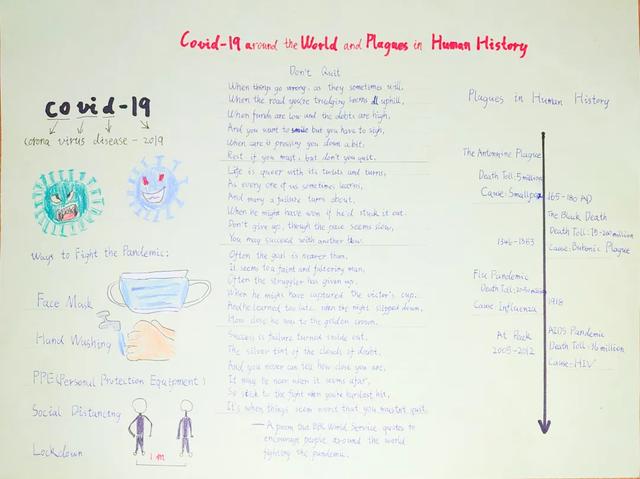 Covid-19 around the World and Plagues in Human History
covid-19
corona virus disease - 2019
Ways to Fight the Pandemic:
Face Mask
Hand Washing
PPE (Personal Protection Equipment)
Social Distancing
1 m
Lockdown
Don't Quit
When things go wrong, as they sometimes will,
When the road you're trudging seems all uphill,
When funds are low and the debts are high,
And you want to smile but you have to sigh,
When care is pressing you down a bit,
Rest if you must, but don't you quit.
Life is queer with its twists and turns,
As every one of us sometimes learns,
And many a failure turns about,
When he might have won if he'd stuck it out.
Don't give up, though the pace seems slow,
You may succeed with another
Often the goal is nearer than,
It seems to a faint and faltering man,
Often the struggler has given up,
When he might have captured the victor's cup.
And he learned too late, when the night slipped down,
How close he was to the golden crown.
Success is failure turned inside out,
The silver tint of the clouds of doubt,
And you never can tell how close you are,
It may be near when it seems afar,
So stick to the fight when you're hardest hit,
It's when things seem worst that you mustn't quit.
— A poem that BBC World Service quotes to
encourage people around the world
fighting the pandemic.
Plagues in Human History
The Antonnine Plague
Death Toll: 5 million
Cause: Smallpox
165-180 AD
The Black Death
Death Toll: million
Cause: Bubonic Plague
1346-1353
Flu Pandemic
Death Toll: million
Cause: Influenza
1918
AIDS Pandemic
Death Toll: 36 million
Cause: HIV
At Peak
2005-2012